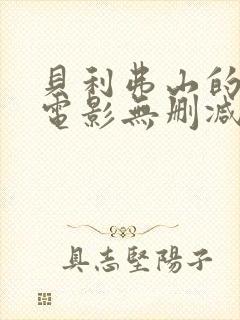 貝利弗山的
電影無刪減
具志堅陽子